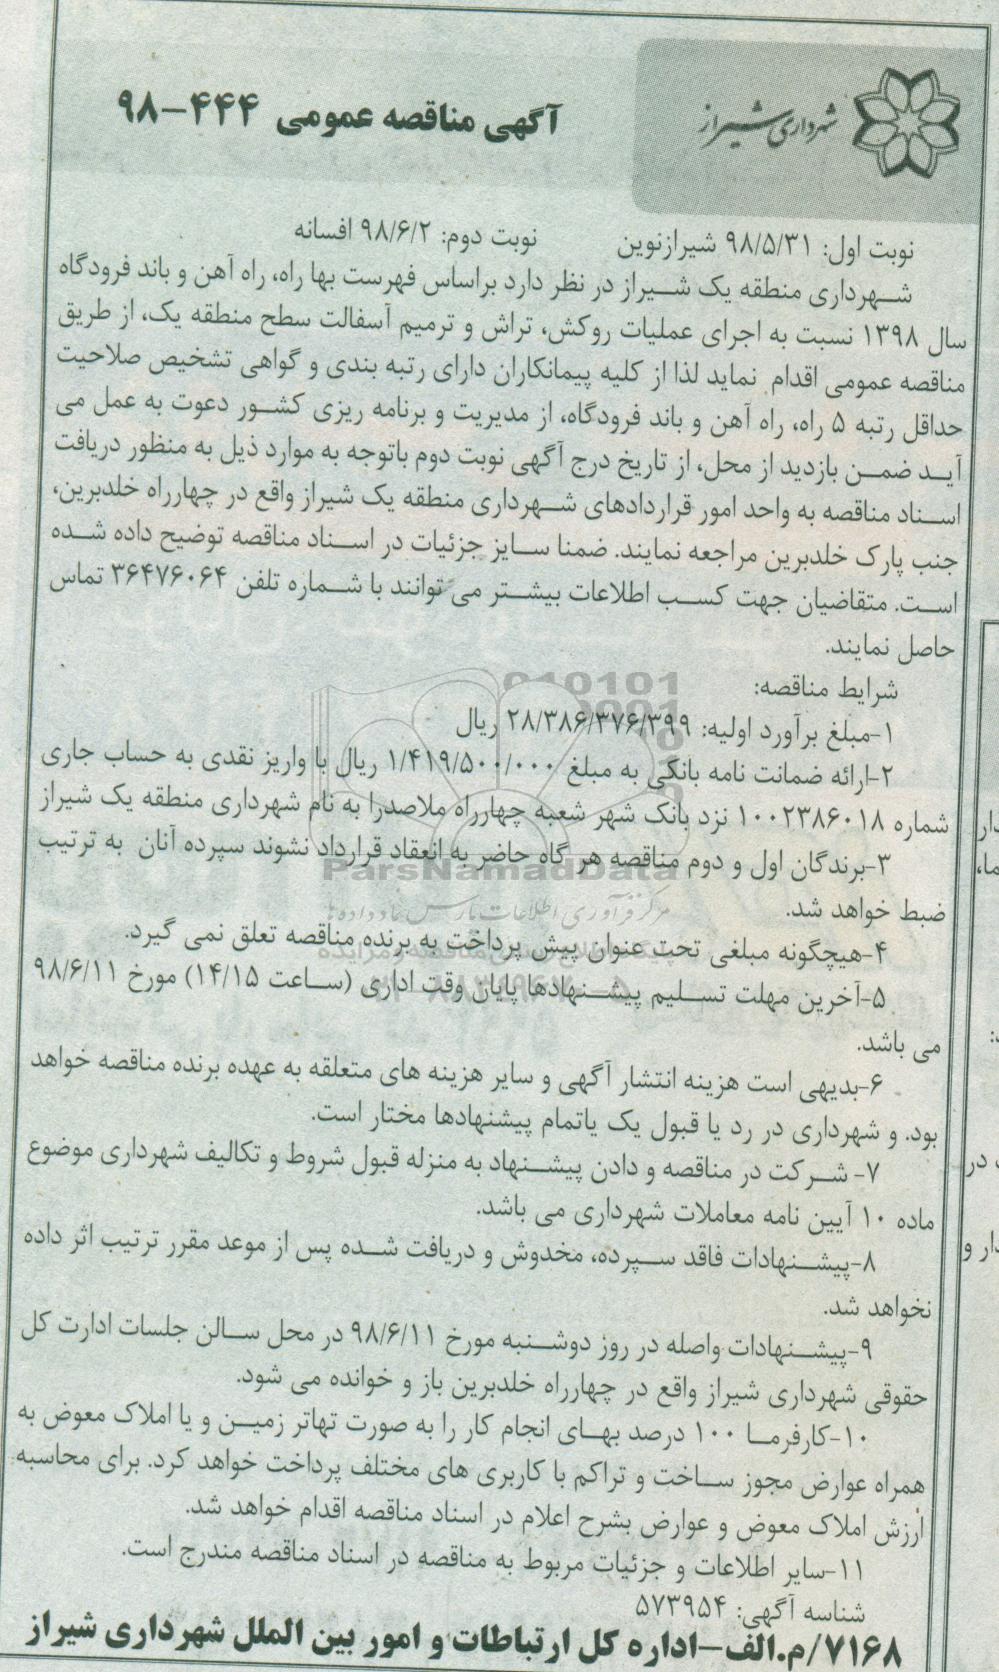 شهرداری شیراز
آگهی مناقصه عمومی ۴۴۴-۹۸
نوبت اول: ۹۸/۵/۳۱ شیرازنوین نوبت دوم: ۹۸/۶/۲ افسانه
شهرداری منطقه یک شیراز در نظر دارد براساس فهرست بها راه، راه آهن و باند فرودگاه
سال ۱۳۹۸ نسبت به اجرای عملیات روکش، تراش و ترمیم آسفالت سطح منطقه یک، از طریق
مناقصه عمومی اقدام نماید لذا از کلیه پیمانکاران دارای رتبه بندی و گواهی تشخیص صلاحیت
حداقل رتبه ۵ راه، راه آهن و باند فرودگاه، از مدیریت و برنامه ریزی کشور دعوت به عمل می
آید ضمن بازدید از محل، از تاریخ درج آگهی نوبت دوم باتوجه به موارد ذیل به منظور دریافت
اسناد مناقصه به واحد امور قراردادهای شهرداری منطقه یک شیراز واقع در چهارراه خلدبرین،
جنب پارک خلدبرین مراجعه نمایند. ضمنا سایز جزئیات در اسناد مناقصه توضیح داده شده
است. متقاضیان جهت کسب اطلاعات بیشتر می توانند با شماره تلفن ۳۶۴۷۶۰۶۴ تماس
حاصل نمایند.
شرایط مناقصه:
۱-مبلغ برآورد اولیه: ۲۸/۳۸۶/۳۷۶/۳۹۹ ریال
۲-ارائه ضمانت نامه بانکی به مبلغ ۱/۴۱۹/۵۰۰/۰۰۰ ریال یا واریز نقدی به حساب جاری
شماره ۱۰۰۲۳۸۶۰۱۸ نزد بانک شهر شعبه چهارراه ملاصدرا به نام شهرداری منطقه یک شیراز
۳-برندگان اول و دوم مناقصه هر گاه حاضر به انعقاد قرارداد نشوند سپرده آنان به ترتیب
ضبط خواهد شد.
۴-هیچگونه مبلغی تحت عنوان پیش پرداخت به برنده مناقصه تعلق نمی گیرد.
۵-آخرین مهلت تسلیم پیشنهادها پایان وقت اداری (ساعت ۱۴/۱۵) مورخ ۹۸/۶/۱۱
می باشد.
۶-بدیهی است هزینه انتشار آگهی و سایر هزینه های متعلقه به عهده برنده مناقصه خواهد
بود. و شهرداری در رد یا قبول یک یاتمام پیشنهادها مختار است.
۷- شرکت در مناقصه و دادن پیشنهاد به منزله قبول شروط و تکالیف شهرداری موضوع
ماده ۱۰ آیین نامه معاملات شهرداری می باشد.
۸-پیشنهادات فاقد سپرده، مخدوش و دریافت شده پس از موعد مقرر ترتیب اثر داده
نخواهد شد.
۹-پیشنهادات واصله در روز دوشنبه مورخ ۹۸/۶/۱۱ در محل سالن جلسات ادارت کل
حقوقی شهرداری شیراز واقع در چهارراه خلدبرین باز و خوانده می شود.
۱۰-کارفرما ۱۰۰ درصد بهای انجام کار را به صورت تهاتر زمین و یا املاک معوض به
همراه عوارض مجوز ساخت و تراکم با کاربری های مختلف پرداخت خواهد کرد. برای محاسبه
ارزش املاک معوض و عوارض بشرح اعلام در اسناد مناقصه اقدام خواهد شد.
۱۱-سایر اطلاعات و جزئیات مربوط به مناقصه در اسناد مناقصه مندرج است.
شناسه آگهی: ۵۷۳۹۵۴
۷۱۶۸/م.الف-اداره کل ارتباطات و امور بین الملل شهرداری شیراز
ParsNamadData
مرکز فرآوری اطلاعات پارس نماد داده ها